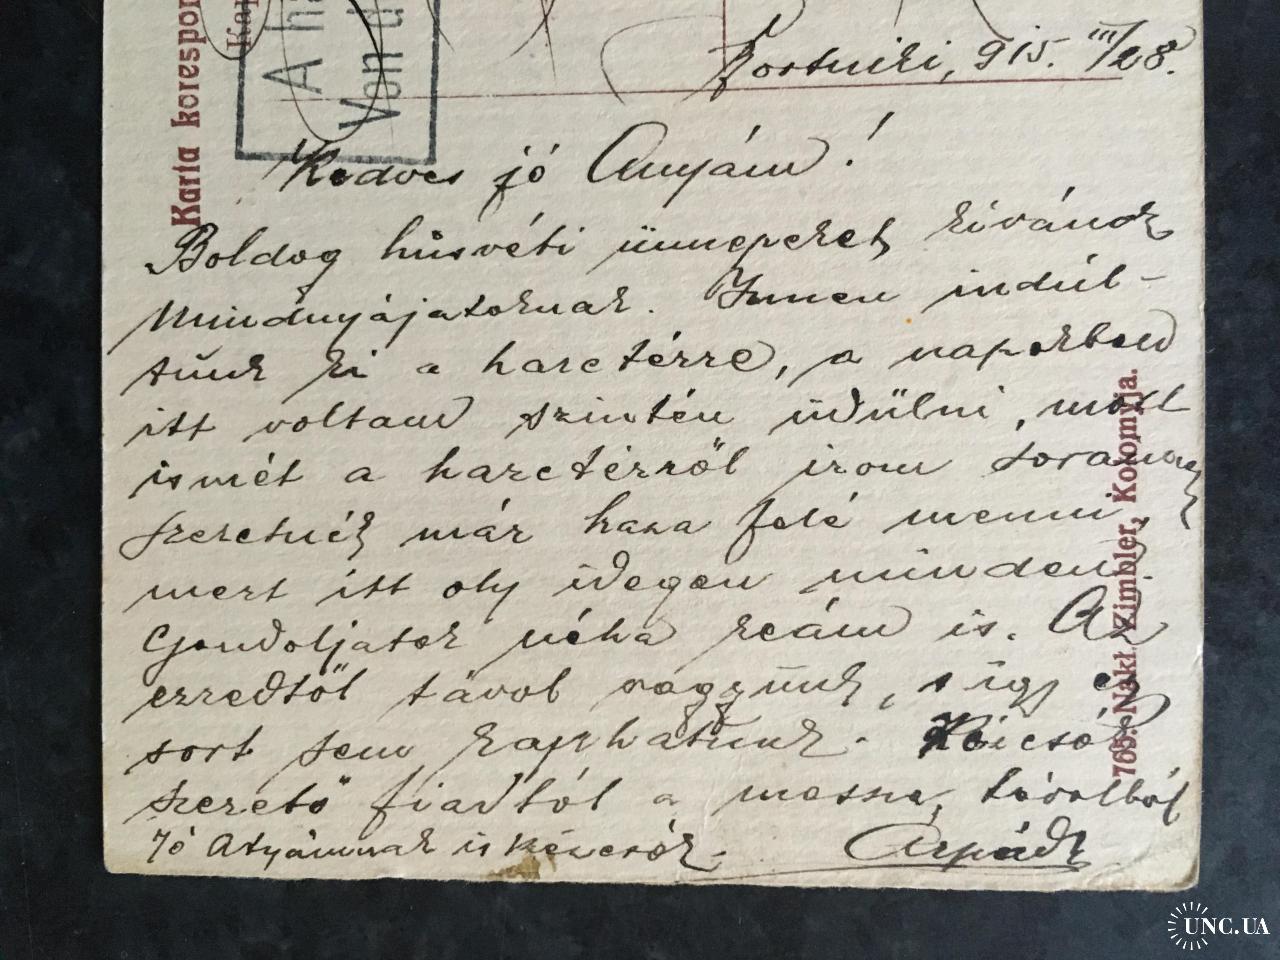 Karta korespon
Kap
A ha
Von d
Kostniki, 915. III/28.
Kedves jó Anyám!
Boldog húsvéti ünnepeket kívánok
Mindnyájatoknak. Innen indúl-
tunk ki a harctérre, a napokban
itt voltam szintén üdülni, most
ismét a harctérről irom soraimat
szeretnék már haza felé menni,
mert itt oly idegen minden.
Gondoljatok néha reám is. Az
ezredtől távol vagyunk, s így
sort sem kaphatunk. Kézcsók
szerető fiadtól a messze távolból
Jó Atyámnak is kézcsók. Árpád
765. Nakł. Zimbler, Kołomyja.
UNC.UA